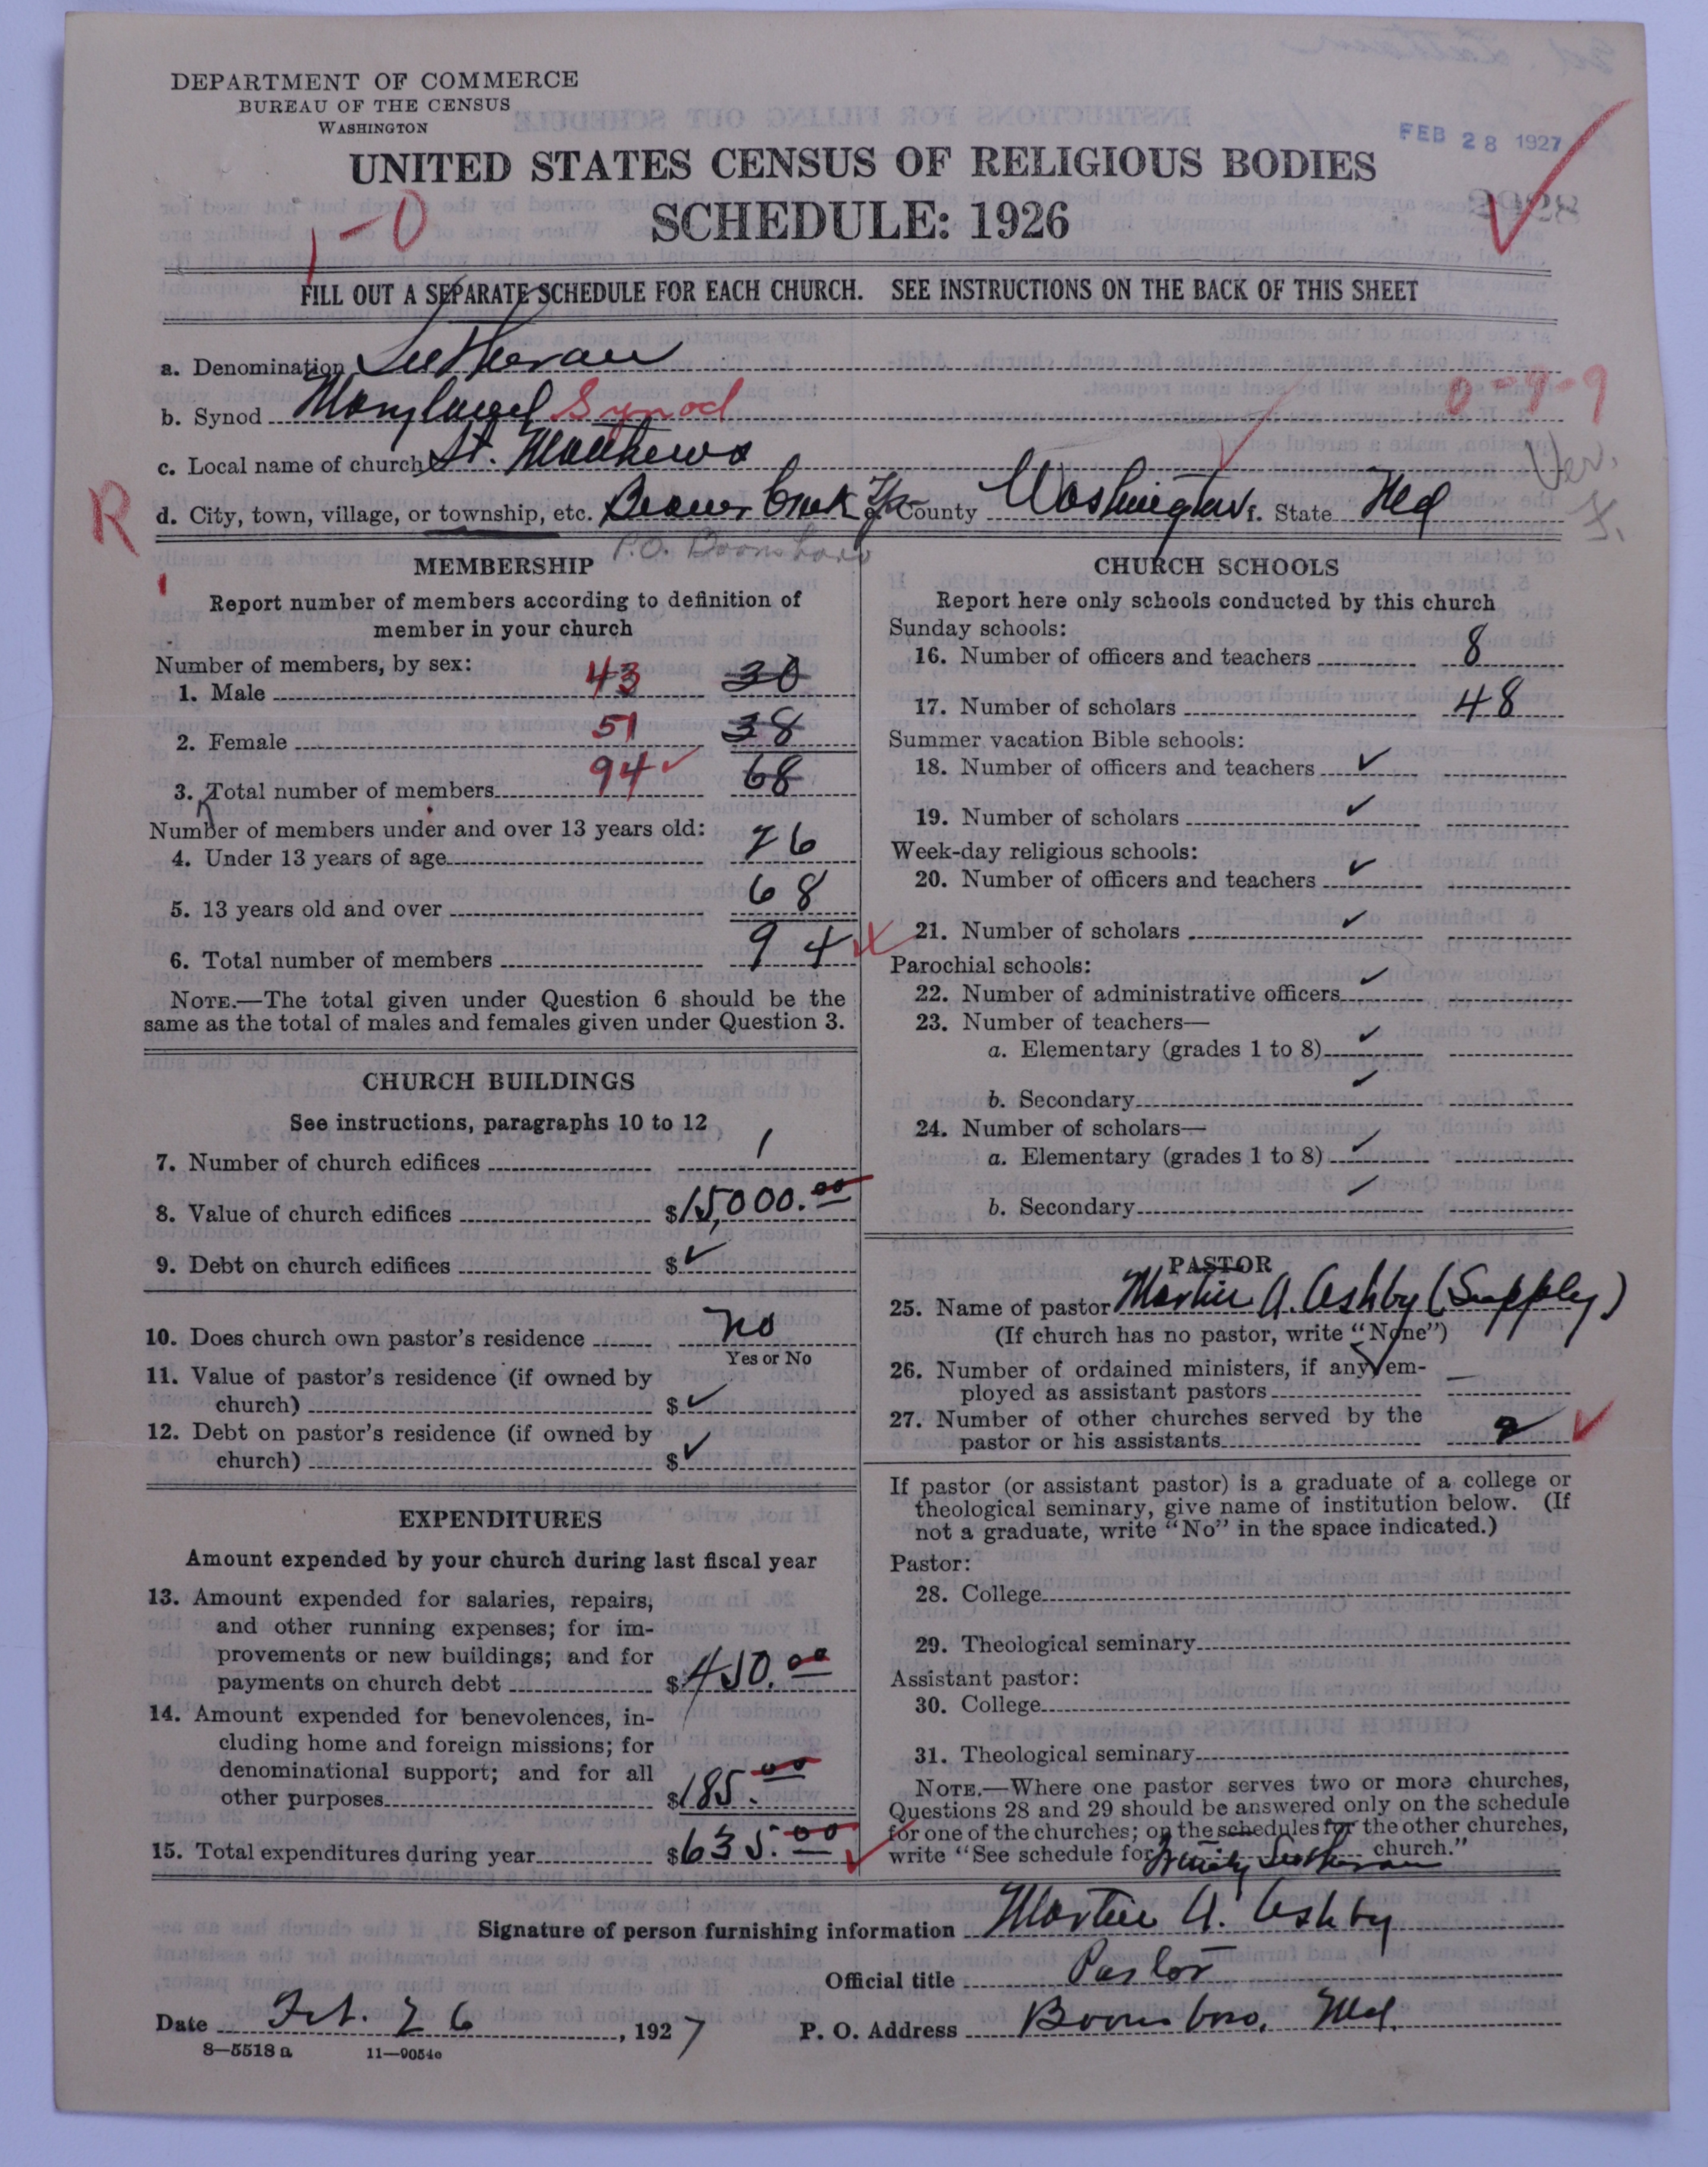 DEPARTMENT OF COMMERCE
BUREAU OF THE CENSUS
WASHINGTON
FEB 28 1927
UNITED STATES CENSUS OF RELIGIOUS BODIES
SCHEDULE: 1926
1-0
FILL OUT A SEPARATE SCHEDULE FOR EACH CHURCH. SEE INSTRUCTIONS ON THE BACK OF THIS SHEET
a. Denomination Lutheran
b. Synod Maryland Synod 0-9-9
c. Local name of church St. Matthews Ver.
R d. City, town, village, or township, etc. Beaver Creek Tp. County Washington State Md
P.O. Boonsboro
MEMBERSHIP
Report number of members according to definition of
member in your church
Number of members, by sex:
1. Male 43 30
2. Female 51 38
3. Total number of members 94 68
Number of members under and over 13 years old:
4. Under 13 years of age 26
5. 13 years old and over 68
6. Total number of members 94
NOTE.—The total given under Question 6 should be the
same as the total of males and females given under Question 3.
CHURCH BUILDINGS
See instructions, paragraphs 10 to 12
7. Number of church edifices 1
8. Value of church edifices $15,000.00
9. Debt on church edifices $
10. Does church own pastor's residence No
Yes or No
11. Value of pastor's residence (if owned by
church) $
12. Debt on pastor's residence (if owned by
church) $
EXPENDITURES
Amount expended by your church during last fiscal year
13. Amount expended for salaries, repairs,
and other running expenses; for im-
provements or new buildings; and for
payments on church debt $450.00
14. Amount expended for benevolences, in-
cluding home and foreign missions; for
denominational support; and for all
other purposes $185.00
15. Total expenditures during year $635.00
CHURCH SCHOOLS
Report here only schools conducted by this church
Sunday schools:
16. Number of officers and teachers 8
17. Number of scholars 48
Summer vacation Bible schools:
18. Number of officers and teachers
19. Number of scholars
Week-day religious schools:
20. Number of officers and teachers
21. Number of scholars
Parochial schools:
22. Number of administrative officers
23. Number of teachers—
a. Elementary (grades 1 to 8)
b. Secondary
24. Number of scholars—
a. Elementary (grades 1 to 8)
b. Secondary
PASTOR
25. Name of pastor Martin A. Ashby (Supply)
(If church has no pastor, write "None")
26. Number of ordained ministers, if any, em-
ployed as assistant pastors —
27. Number of other churches served by the
pastor or his assistants 2
If pastor (or assistant pastor) is a graduate of a college or
theological seminary, give name of institution below. (If
not a graduate, write "No" in the space indicated.)
Pastor:
28. College
29. Theological seminary
Assistant pastor:
30. College
31. Theological seminary
NOTE.—Where one pastor serves two or more churches,
Questions 28 and 29 should be answered only on the schedule
for one of the churches; on the schedules for the other churches,
write "See schedule for Trinity Lutheran church."
Signature of person furnishing information Martin A. Ashby
Official title Pastor
Date Feb. 26, 1927 P. O. Address Boonsboro, Md.
8—5518 a 11—9054o